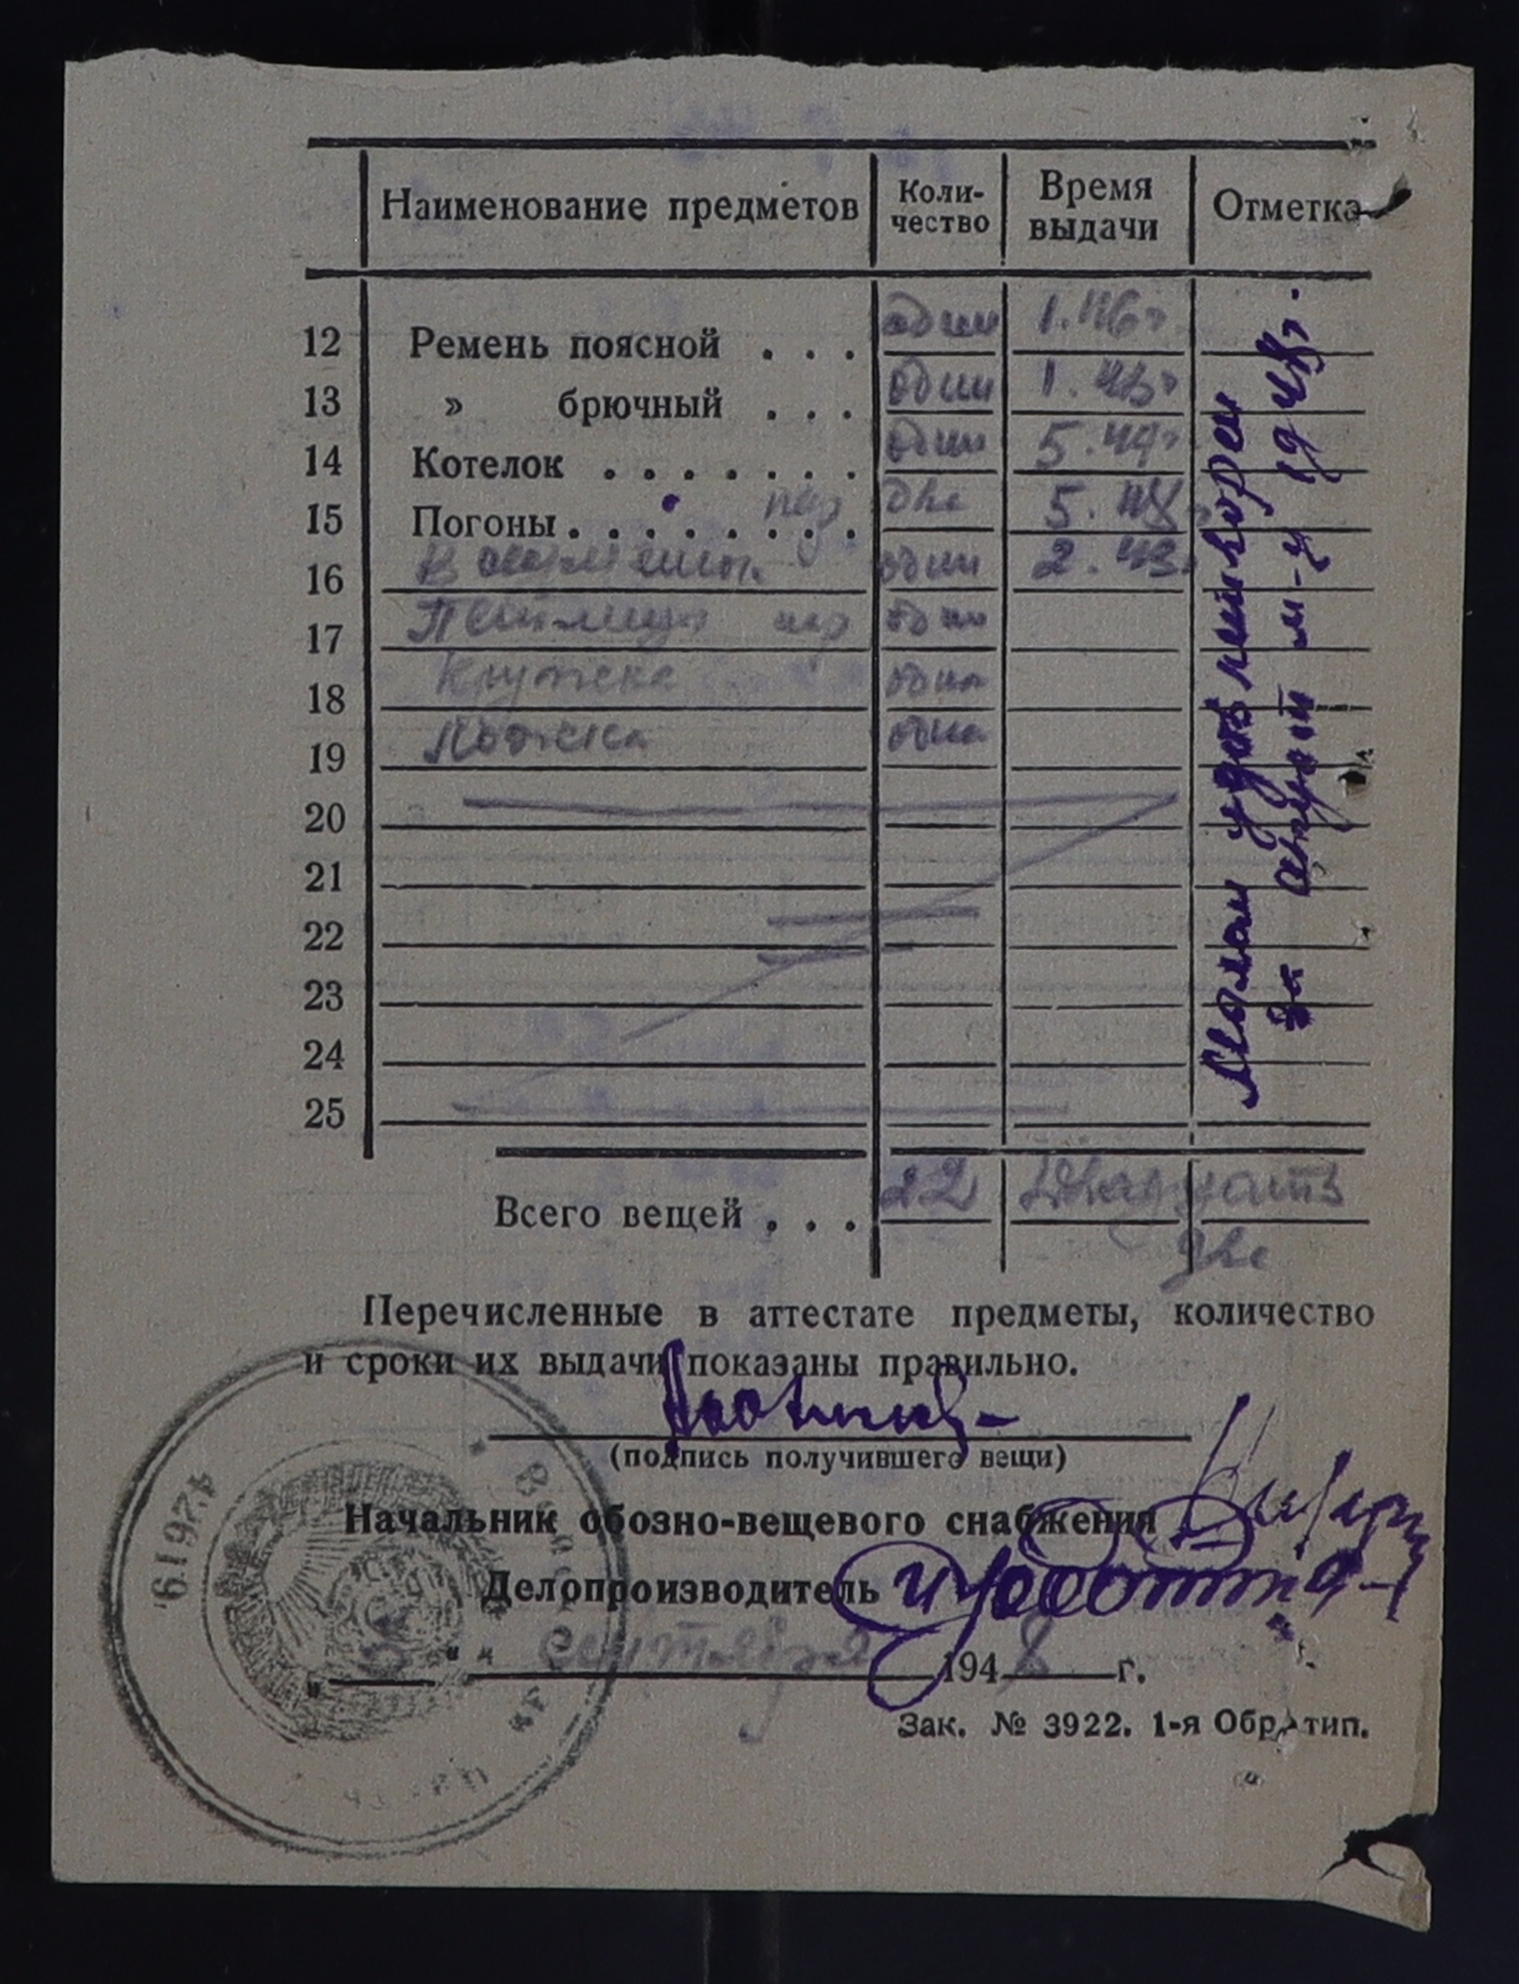 Наименование предметов Коли-чество Время выдачи Отметка
12 Ремень поясной . . . один 1.46г
13 » брючный . . . один 1.48г
14 Котелок . . . . . . . один 5.47г
15 Погоны . . . . . . . . пар две 5.48г
16 один 2.48г
17 Петлицы пар одна
18 Кружка одна
19 Ложка одна
20
21
22
23
24
25
мылом удовлетворен
за август м-ц 1948г.
Всего вещей . . . 22 Двадцать
две
Перечисленные в аттестате предметы, количество
и сроки их выдачи показаны правильно.
(подпись получившего вещи)
Начальник обозно-вещевого снабжения
Делопроизводитель
„ 3 “ сентября 1948 г.
Зак. № 3922. 1-я Обр. тип.
42619